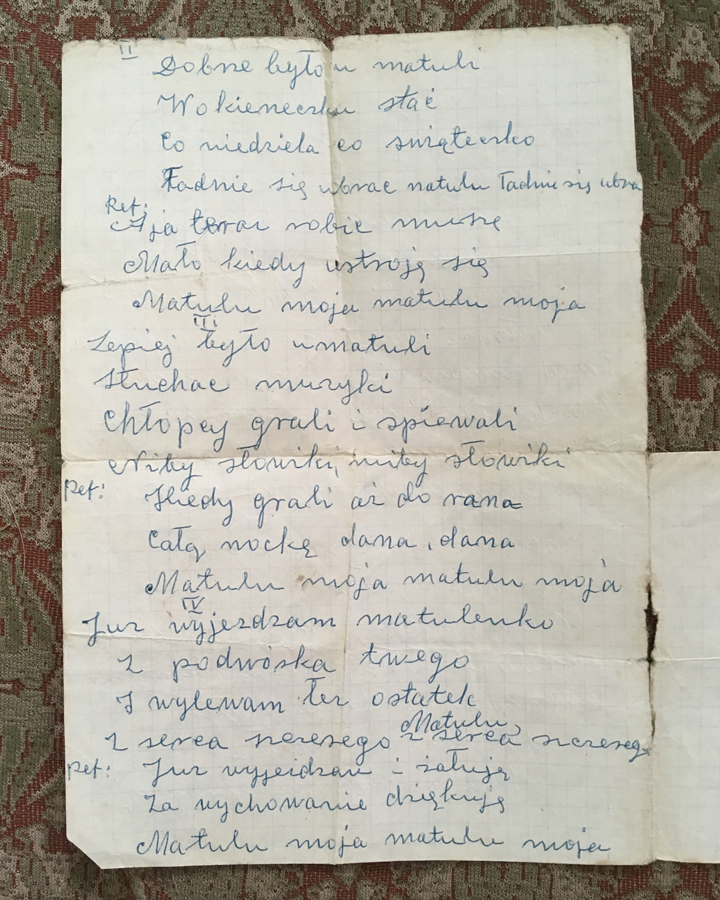 II
Dobrze było u matuli
W okieneczku stać
Co niedziela co świąteczko
Ładnie się ubrac matulu Ładnie się ubra
Ref:
A ja teraz robić muszę
Mało kiedy ustroję się
Matulu moja matulu moja
III
Lepiej było u matuli
Słuchac muzyki
Chłopcy grali i spiewali
Niby słowiki, niby słowiki
Ref:
Kiedy grali aż do rana
Całą nockę dana, dana
Matulu moja matulu moja
IV
Juz wyjezdzam matulenko
Z podwórka twego
I wylewam łez ostatek
Matulu
Z serca szczesego z serca szczeseg
Ref:
Juz wyjezdzam i żałuję
Za wychowanie dziękuję
Matulu moja matulu moja